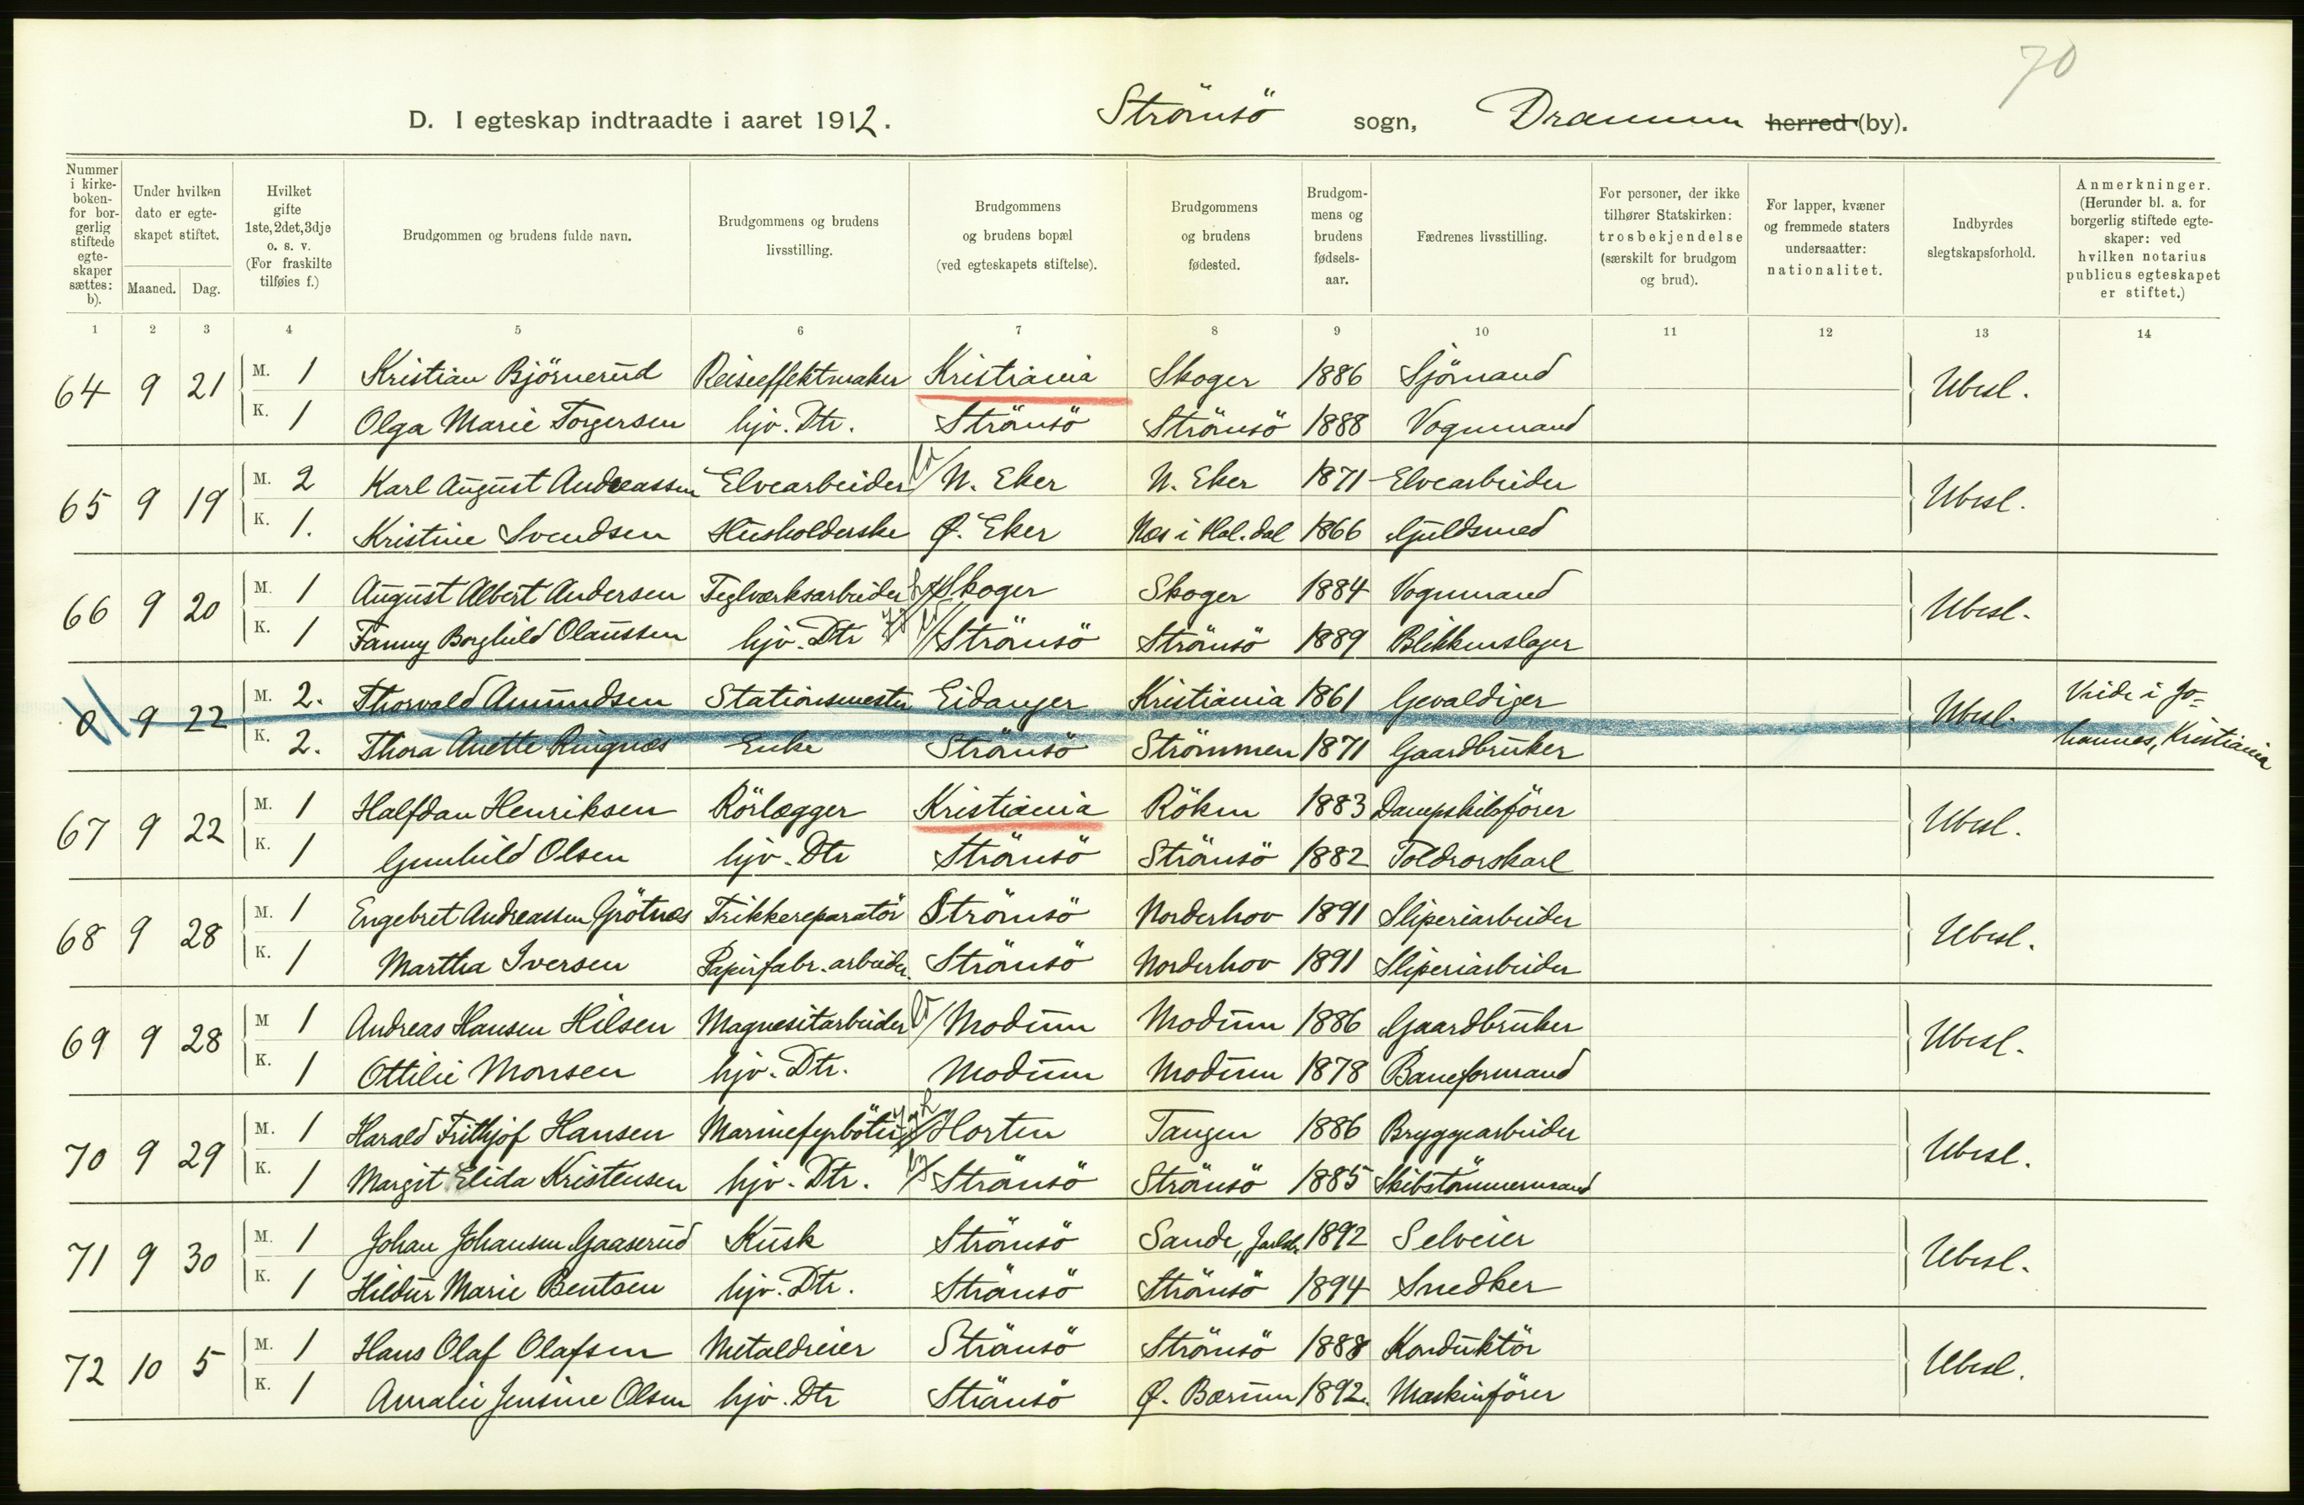 70
D. I egteskap indtraadte i aaret 1912. Strömsö sogn, Drammen herred (by).
Nummer i kirkeboken- for borgerlig stiftede egteskaper sættes: b).
Under hvilken dato er egteskapet stiftet.
Maaned. Dag.
Hvilket gifte 1ste, 2det, 3dje o. s. v. (For fraskilte tilføies f.)
Brudgommen og brudens fulde navn.
Brudgommens og brudens livsstilling.
Brudgommens og brudens bopæl (ved egteskapets stiftelse).
Brudgommens og brudens fødested.
Brudgommens og brudens fødselsaar.
Fædrenes livsstilling.
For personer, der ikke tilhører Statskirken: trosbekjendelse (særskilt for brudgom og brud).
For lapper, kvæner og fremmede staters undersaatter: nationalitet.
Indbyrdes slegtskapsforhold.
Anmerkninger. (Herunder bl. a. for borgerlig stiftede egteskaper: ved hvilken notarius publicus egteskapet er stiftet.)
1 2 3 4 5 6 7 8 9 10 11 12 13 14
64 9 21 M. 1 Kristian Björnerud Reiseeffektmaker Kristiania Skoger 1886 Sjömand Ubesl.
K. 1 Olga Marie Torgersen hjv. Dtr. Strömsö Strömsö 1888 Vognmand
65 9 19 M. 2 Karl August Andreassen Elvearbeider N. Eker N. Eker 1871 Elvearbeider Ubesl.
K. 1. Kristine Svendsen Husholderske Ø. Eker Nes i Hal.dal 1866 Guldsmed
66 9 20 M. 1 August Albert Andersen Teglverksarbeider Skoger Skoger 1884 Vognmand Ubesl.
K. 1 Fanny Borghild Olaussen hjv. Dtr Strömsö Strömsö 1889 Blikkenslager
9 22 M. 2. Thorvald Amundsen Stationsmester Eidanger Kristiania 1861 Gevaldiger Ubesl. Viede i Jo-
K. 2. Thora Anette Ringnes Enke Strömsö Strömmen 1871 Gaardbruker hannes, Kristiania
67 9 22 M. 1 Halfdan Henriksen Rörlægger Kristiania Röken 1883 Dampskibsförer Ubesl.
K. 1 Gunhild Olsen hjv. Dtr Strömsö Strömsö 1882 Toldrorskarl
68 9 28 M. 1 Engebret Andreassen Grötnes Trikkereparatör Strömsö Norderhov 1891 Sliperiarbeider Ubesl.
K. 1 Martha Iversen Papirfabr. arbeider. Strömsö Norderhov 1891 Sliperiarbeider
69 9 28 M 1 Andreas Hansen Hilsen Magnesitarbeider Modum Modum 1886 Gaardbruker Ubesl.
K. 1 Ottilie Monsen hjv. Dtr. Modum Modum 1878 Baneformand
70 9 29 M. 1 Harald Frithjof Hansen Marinefyrböter Horten Tangen 1886 Bryggearbeider Ubesl.
K. 1 Margit Elida Kristensen hjv. Dtr. Strömsö Strömsö 1885 Skibstömmermand
71 9 30 M. 1 Johan Johansen Gaaserud Kusk Strömsö Sande, Jarlsb. 1892 Selveier Ubesl.
K. 1 Hildur Marie Bentsen hjv. Dtr. Strömsö Strömsö 1894 Snedker
72 10 5 M. 1 Hans Olaf Olafsen Metaldreier Strömsö Strömsö 1888 Konduktör Ubesl.
K. 1 Amalie Jensine Olsen hjv. Dtr Strömsö Ø. Bærum 1892. Maskinförer